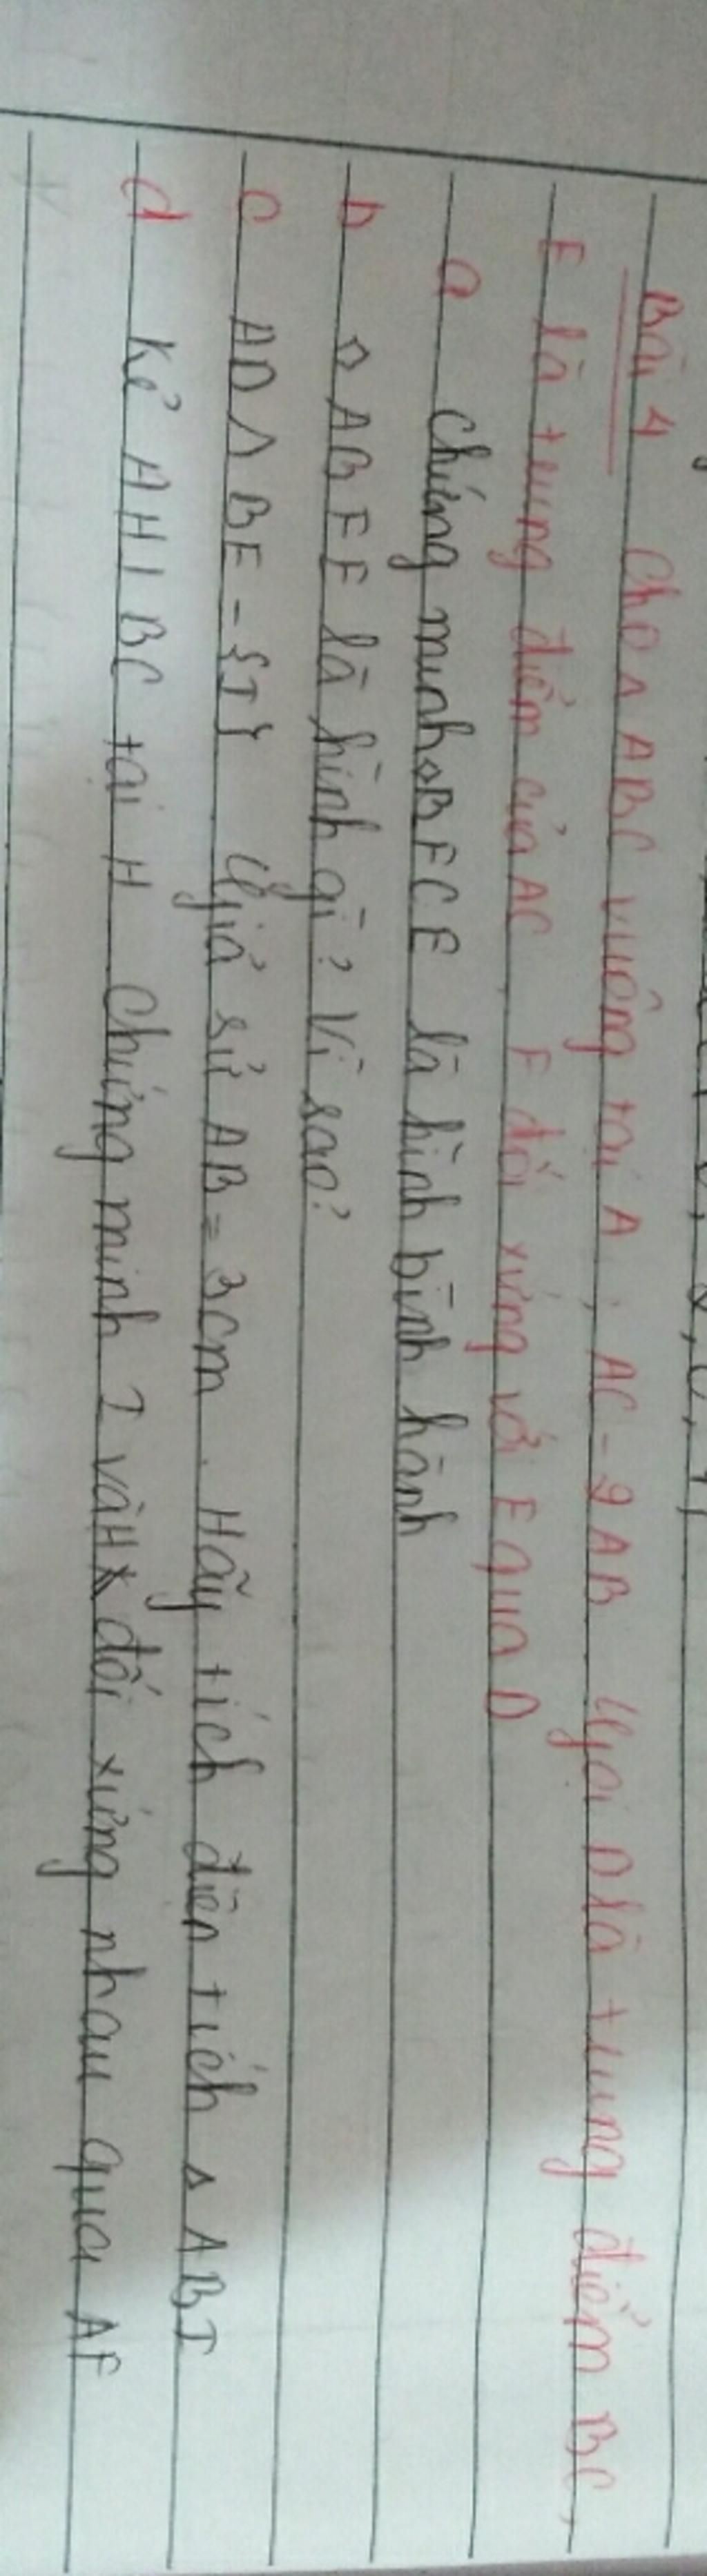 Bài 4 Cho △ ABC vuông tại A ; AC = 2AB Gọi D là trung điểm BC,
E là trung điểm của AC , F đối xứng với E qua D
a Chứng minh ◇ BFCE là hình bình hành
b ◇ ABFE là hình gì? Vì sao?
c AD ∩ BE = {I} Giả sử AB = 3cm . Hãy tích diện tích △ ABI
d Kẻ AH ⊥ BC tại H Chứng minh I và H đối xứng nhau qua AF